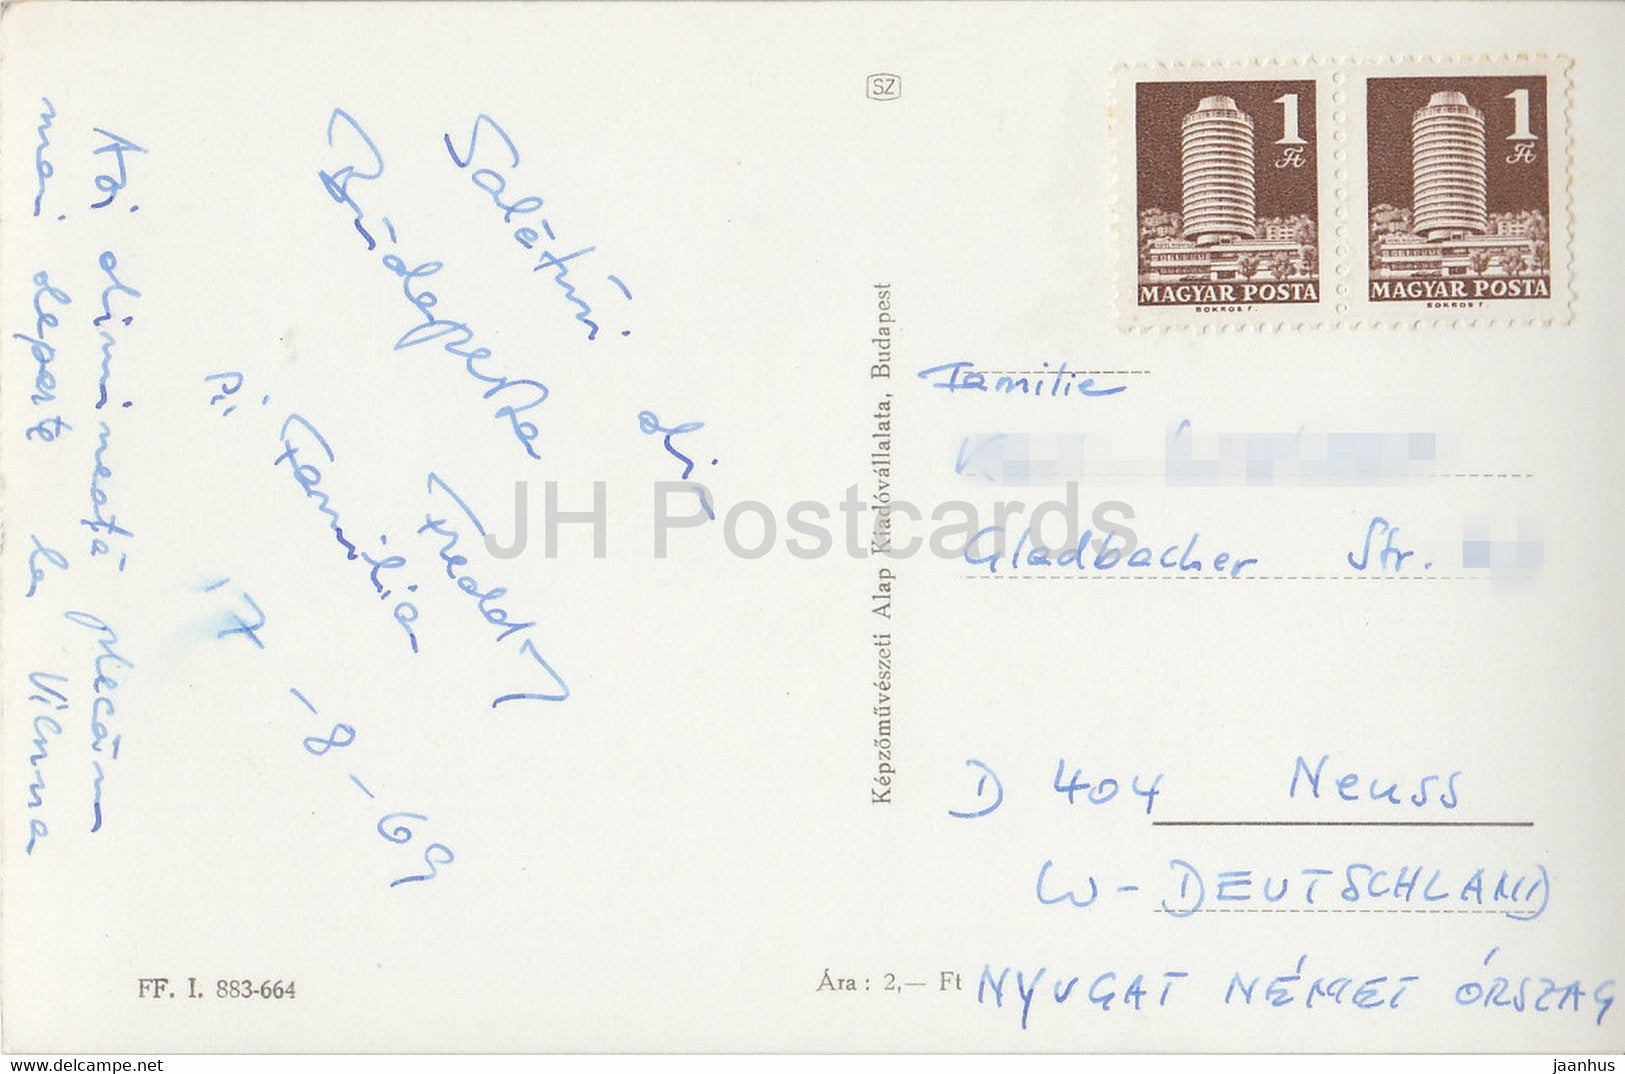 Salutări din
Budapesta
Freddy
și Familia
17-8-69
Azi dimineață plecăm
mai departe la Vienna
SZ
Képzőművészeti Alap Kiadóvállalata, Budapest
FF. I. 883-664
Ára: 2,— Ft
1 Ft
MAGYAR POSTA
SOKROS F.
1 Ft
MAGYAR POSTA
SOKROS F.
Familie
Gladbacher Str.
D 404 Neuss
W-DEUTSCHLAND
NYUGAT NÉMET ÓRSZAG
JH Postcards
https://www.delcampe.net
jaanhus